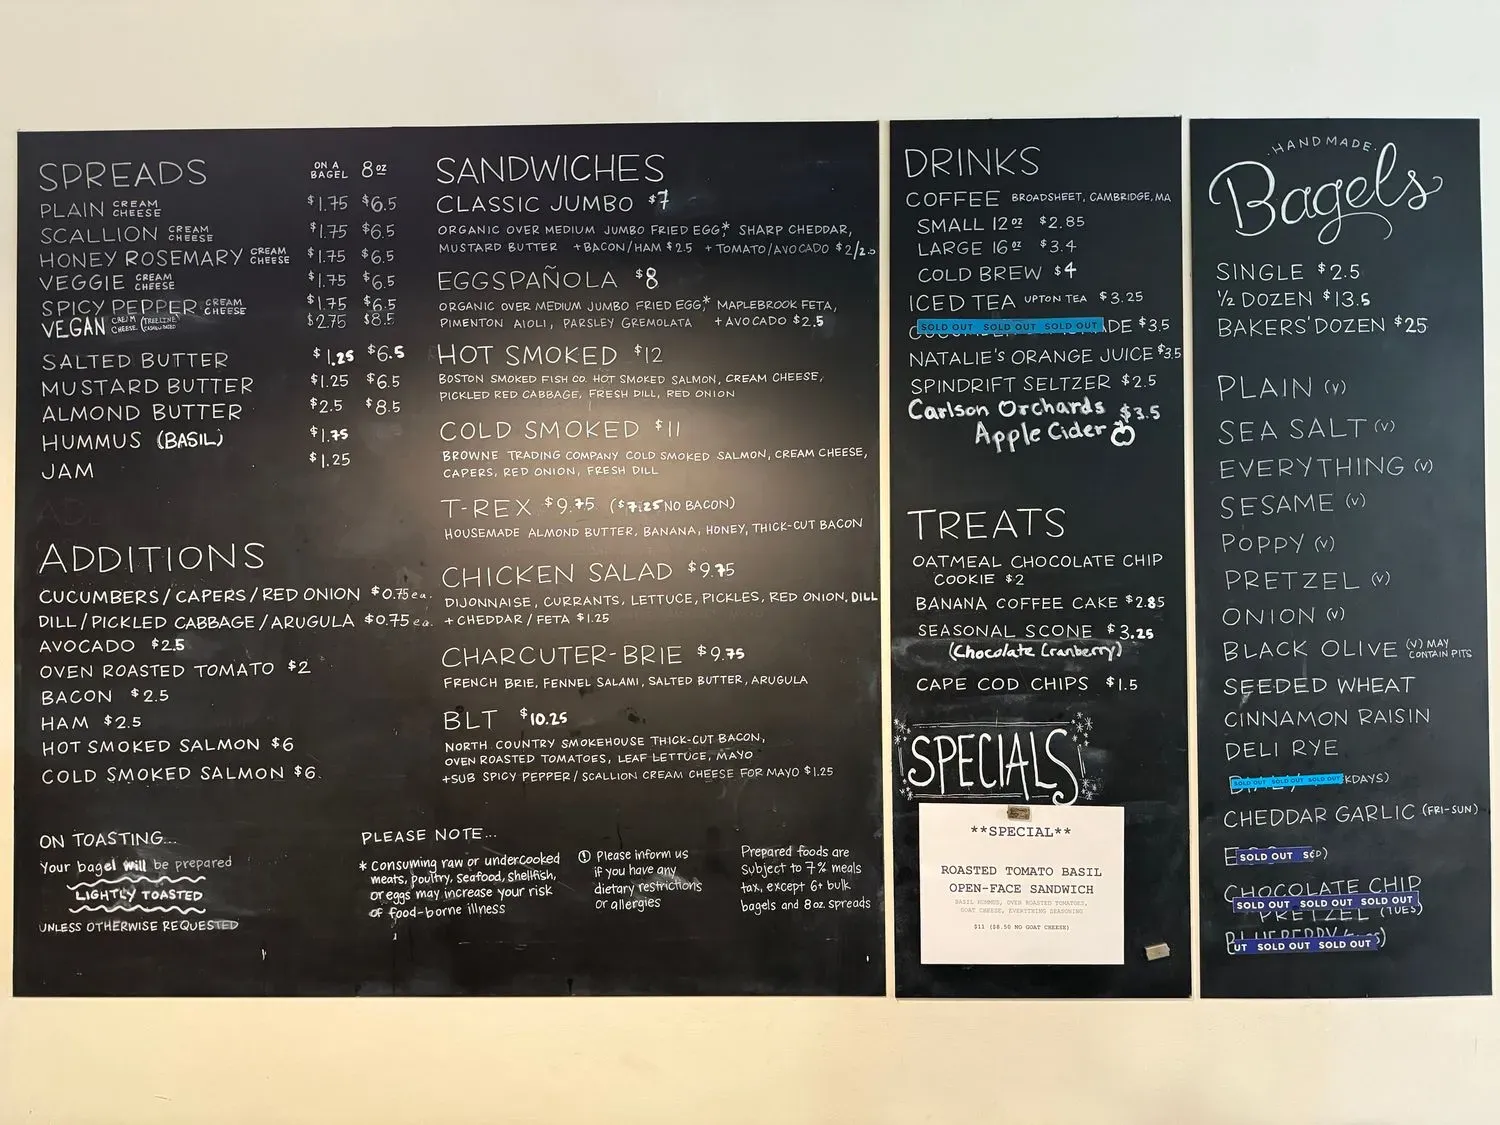 SPREADS
ON A BAGEL 8 oz
PLAIN CREAM CHEESE $1.75 $6.5
SCALLION CREAM CHEESE $1.75 $6.5
HONEY ROSEMARY CREAM CHEESE $1.75 $6.5
VEGGIE CREAM CHEESE $1.75 $6.5
SPICY PEPPER CREAM CHEESE $1.75 $6.5
VEGAN CREAM CHEESE (TREELINE CASHEW BASED) $2.75 $8.5
SALTED BUTTER $1.25 $6.5
MUSTARD BUTTER $1.25 $6.5
ALMOND BUTTER $2.5 $8.5
HUMMUS (BASIL) $1.75
JAM $1.25
ADDITIONS
CUCUMBERS/CAPERS/RED ONION $0.75 ea.
DILL/PICKLED CABBAGE/ARUGULA $0.75 ea.
AVOCADO $2.5
OVEN ROASTED TOMATO $2
BACON $2.5
HAM $2.5
HOT SMOKED SALMON $6
COLD SMOKED SALMON $6.
ON TOASTING...
Your bagel will be prepared
LIGHTLY TOASTED
UNLESS OTHERWISE REQUESTED
SANDWICHES
CLASSIC JUMBO $7
ORGANIC OVER MEDIUM JUMBO FRIED EGG,* SHARP CHEDDAR,
MUSTARD BUTTER +BACON/HAM $2.5 +TOMATO/AVOCADO $2/2.5
EGGSPAÑOLA $8
ORGANIC OVER MEDIUM JUMBO FRIED EGG,* MAPLEBROOK FETA,
PIMENTON AIOLI, PARSLEY GREMOLATA +AVOCADO $2.5
HOT SMOKED $12
BOSTON SMOKED FISH CO. HOT SMOKED SALMON, CREAM CHEESE,
PICKLED RED CABBAGE, FRESH DILL, RED ONION
COLD SMOKED $11
BROWNE TRADING COMPANY COLD SMOKED SALMON, CREAM CHEESE,
CAPERS, RED ONION, FRESH DILL
T-REX $9.75 ($7.25 NO BACON)
HOUSEMADE ALMOND BUTTER, BANANA, HONEY, THICK-CUT BACON
CHICKEN SALAD $9.75
DIJONNAISE, CURRANTS, LETTUCE, PICKLES, RED ONION, DILL
+ CHEDDAR / FETA $1.25
CHARCUTER-BRIE $9.75
FRENCH BRIE, FENNEL SALAMI, SALTED BUTTER, ARUGULA
BLT $10.25
NORTH COUNTRY SMOKEHOUSE THICK-CUT BACON,
OVEN ROASTED TOMATOES, LEAF LETTUCE, MAYO
+SUB SPICY PEPPER/SCALLION CREAM CHEESE FOR MAYO $1.25
PLEASE NOTE...
* Consuming raw or undercooked
meats, poultry, seafood, shellfish,
or eggs may increase your risk
of food-borne illness
! Please inform us
if you have any
dietary restrictions
or allergies
Prepared foods are
subject to 7% meals
tax, except 6+ bulk
bagels and 8oz. spreads
DRINKS
COFFEE BROADSHEET, CAMBRIDGE, MA
SMALL 12 oz $2.85
LARGE 16 oz $3.4
COLD BREW $4
ICED TEA UPTON TEA $3.25
SOLD OUT SOLD OUT SOLD OUT ADE $3.5
NATALIE'S ORANGE JUICE $3.5
SPINDRIFT SELTZER $2.5
Carlson Orchards $3.5
Apple Cider
TREATS
OATMEAL CHOCOLATE CHIP
COOKIE $2
BANANA COFFEE CAKE $2.85
SEASONAL SCONE $3.25
(Chocolate Cranberry)
CAPE COD CHIPS $1.5
SPECIALS
**SPECIAL**
ROASTED TOMATO BASIL
OPEN-FACE SANDWICH
BASIL HUMMUS, OVEN ROASTED TOMATOES,
GOAT CHEESE, EVERYTHING SEASONING
$11 ($8.50 NO GOAT CHEESE)
HANDMADE
Bagels
SINGLE $2.5
1/2 DOZEN $13.5
BAKERS' DOZEN $25
PLAIN (V)
SEA SALT (V)
EVERYTHING (V)
SESAME (V)
POPPY (V)
PRETZEL (V)
ONION (V)
BLACK OLIVE (V) MAY CONTAIN PITS
SEEDED WHEAT
CINNAMON RAISIN
DELI RYE
SOLD OUT SOLD OUT SOLD OUT KDAYS)
CHEDDAR GARLIC (FRI-SUN)
SOLD OUT
CHOCOLATE CHIP
SOLD OUT SOLD OUT SOLD OUT
PRETZEL (TUES)
BLUEBERRY
UT SOLD OUT SOLD OUT